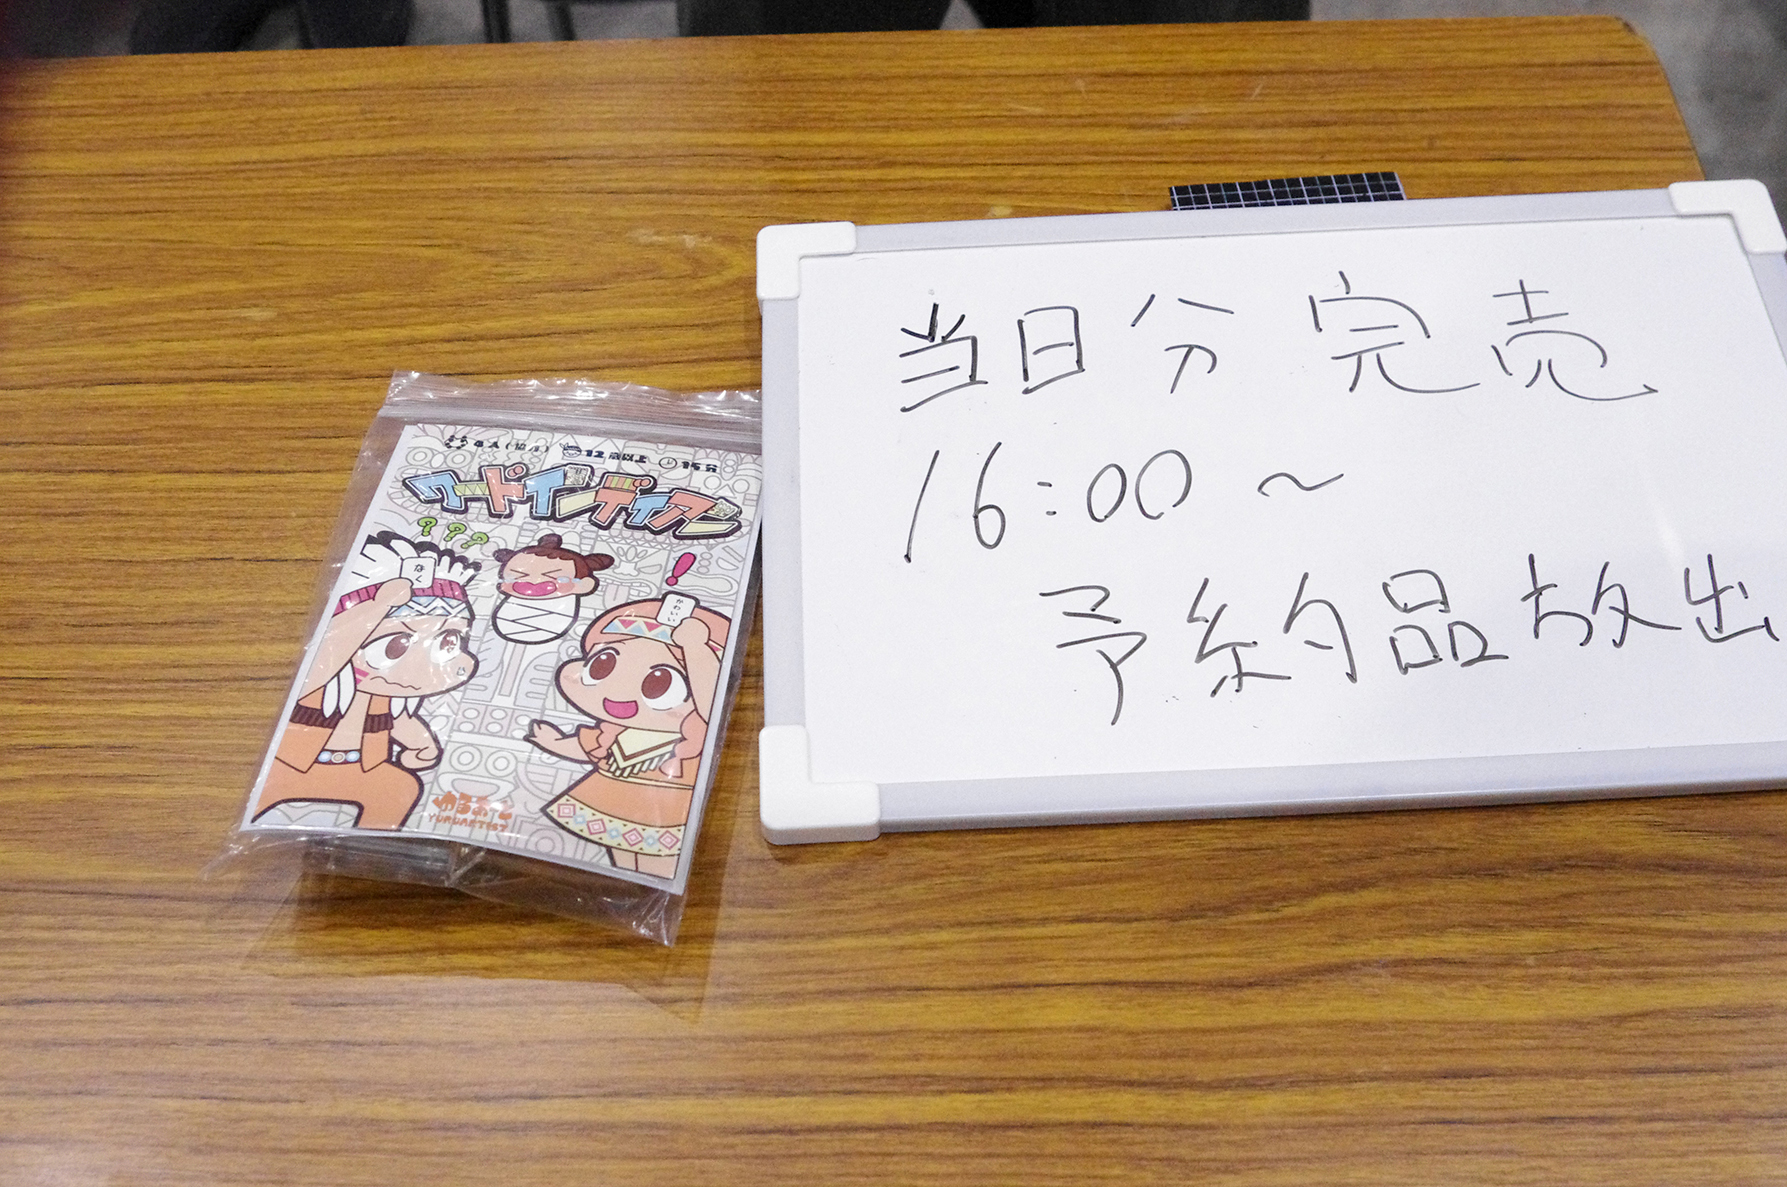 4人(協力) 12歳以上 15分
ワードインディアン
???
なく
!
かわいい
ゆるあと
YURUARTEST
当日分完売
16:00~
予約品放出